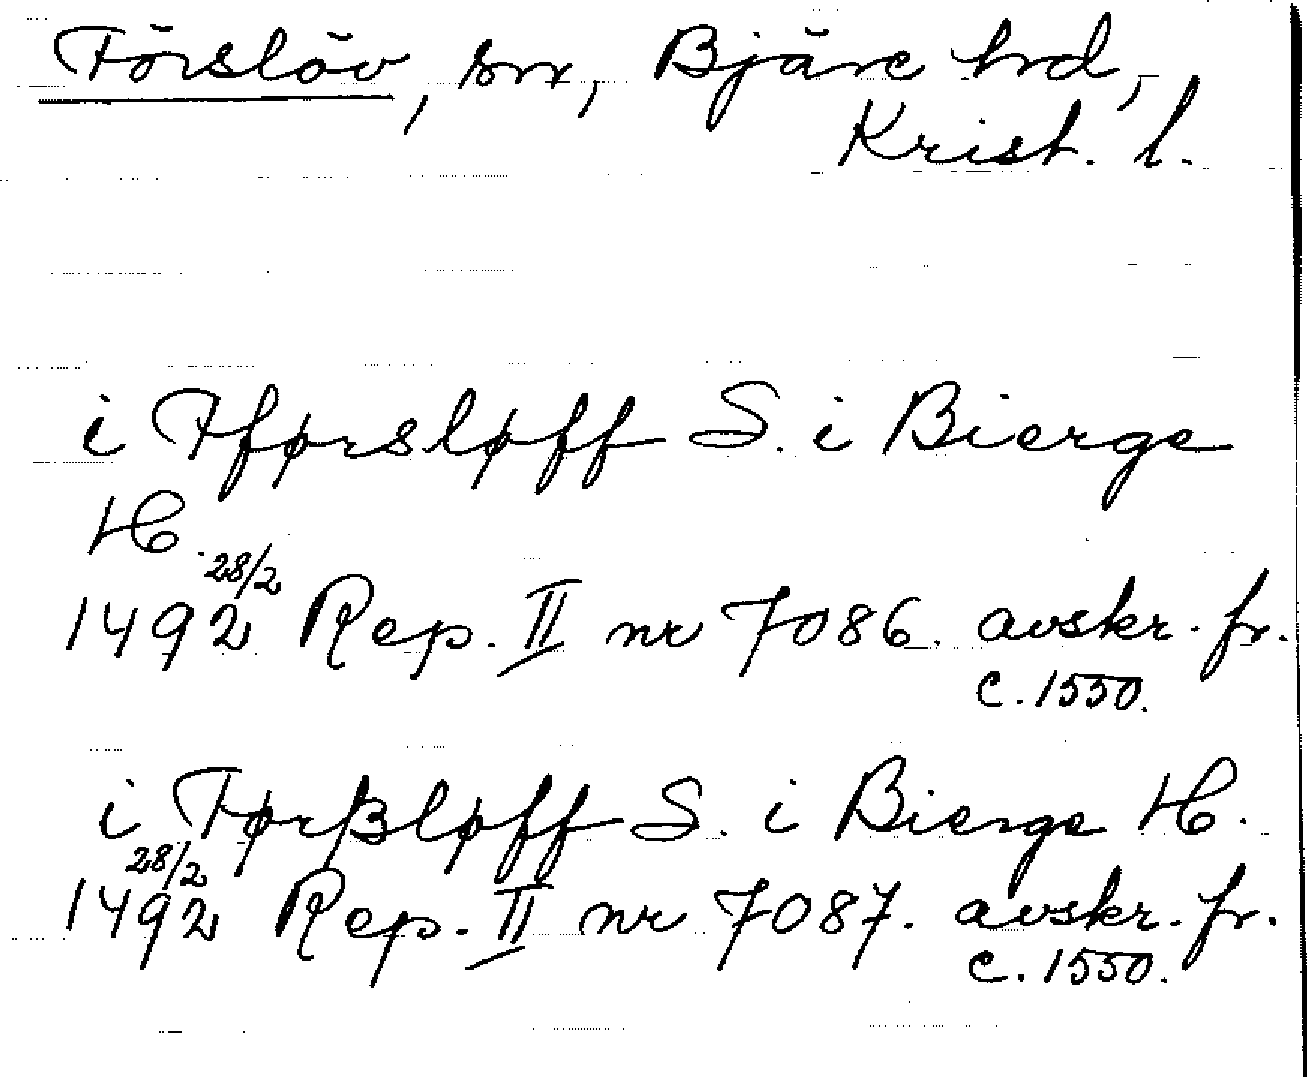 Förslöv, sn, Bjäre hrd,
Krist. l.
i Fførsløff S. i Bierge
H.
28/2
1492 Rep. II nr 7086. avskr. fr.
c. 1550.
i Førßløff S. i Bierge H.
28/2
1492 Rep. II nr 7087. avskr. fr.
c. 1550.